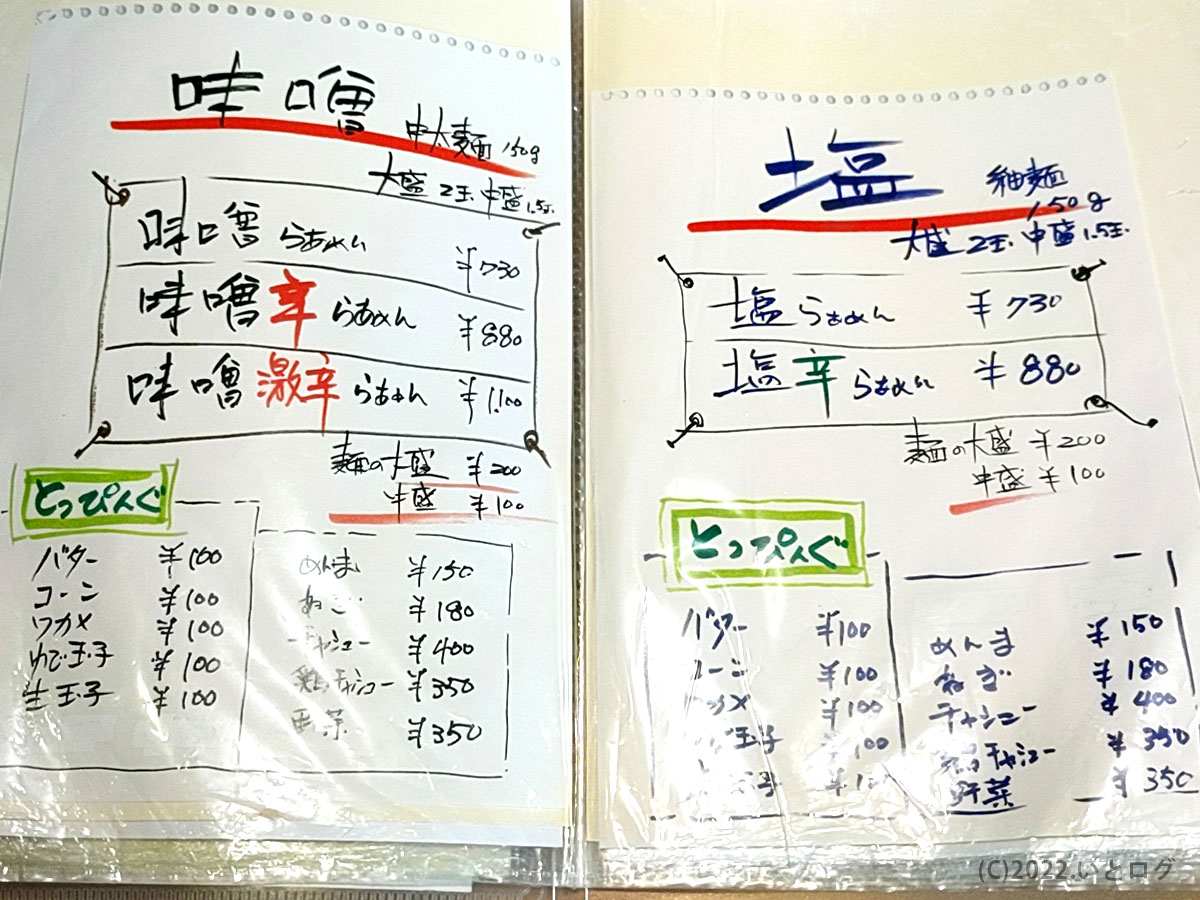 味噌
中太麺 150g
大盛 2玉 中盛 1.5玉
味噌らぁめん ¥730
味噌辛らぁめん ¥880
味噌激辛らぁめん ¥1,100
麺の大盛 ¥200
中盛 ¥100
とっぴんぐ
バター ¥100
コーン ¥100
ワカメ ¥100
ゆで玉子 ¥100
生玉子 ¥100
めんま ¥150
ねぎ ¥180
チャシュー ¥400
鶏チャシュー ¥350
野菜 ¥350
塩
細麺
150g
大盛 2玉. 中盛 1.5玉.
塩らぁめん ¥730
塩辛らぁめん ¥880
麺の大盛 ¥200
中盛 ¥100
とっぴんぐ
バター ¥100
コーン ¥100
ワカメ ¥100
玉子 ¥100
玉子
めんま ¥150
ねぎ ¥180
チャシュー ¥400
鶏チャシュー ¥350
野菜 ¥350
(C)2022.いとログ